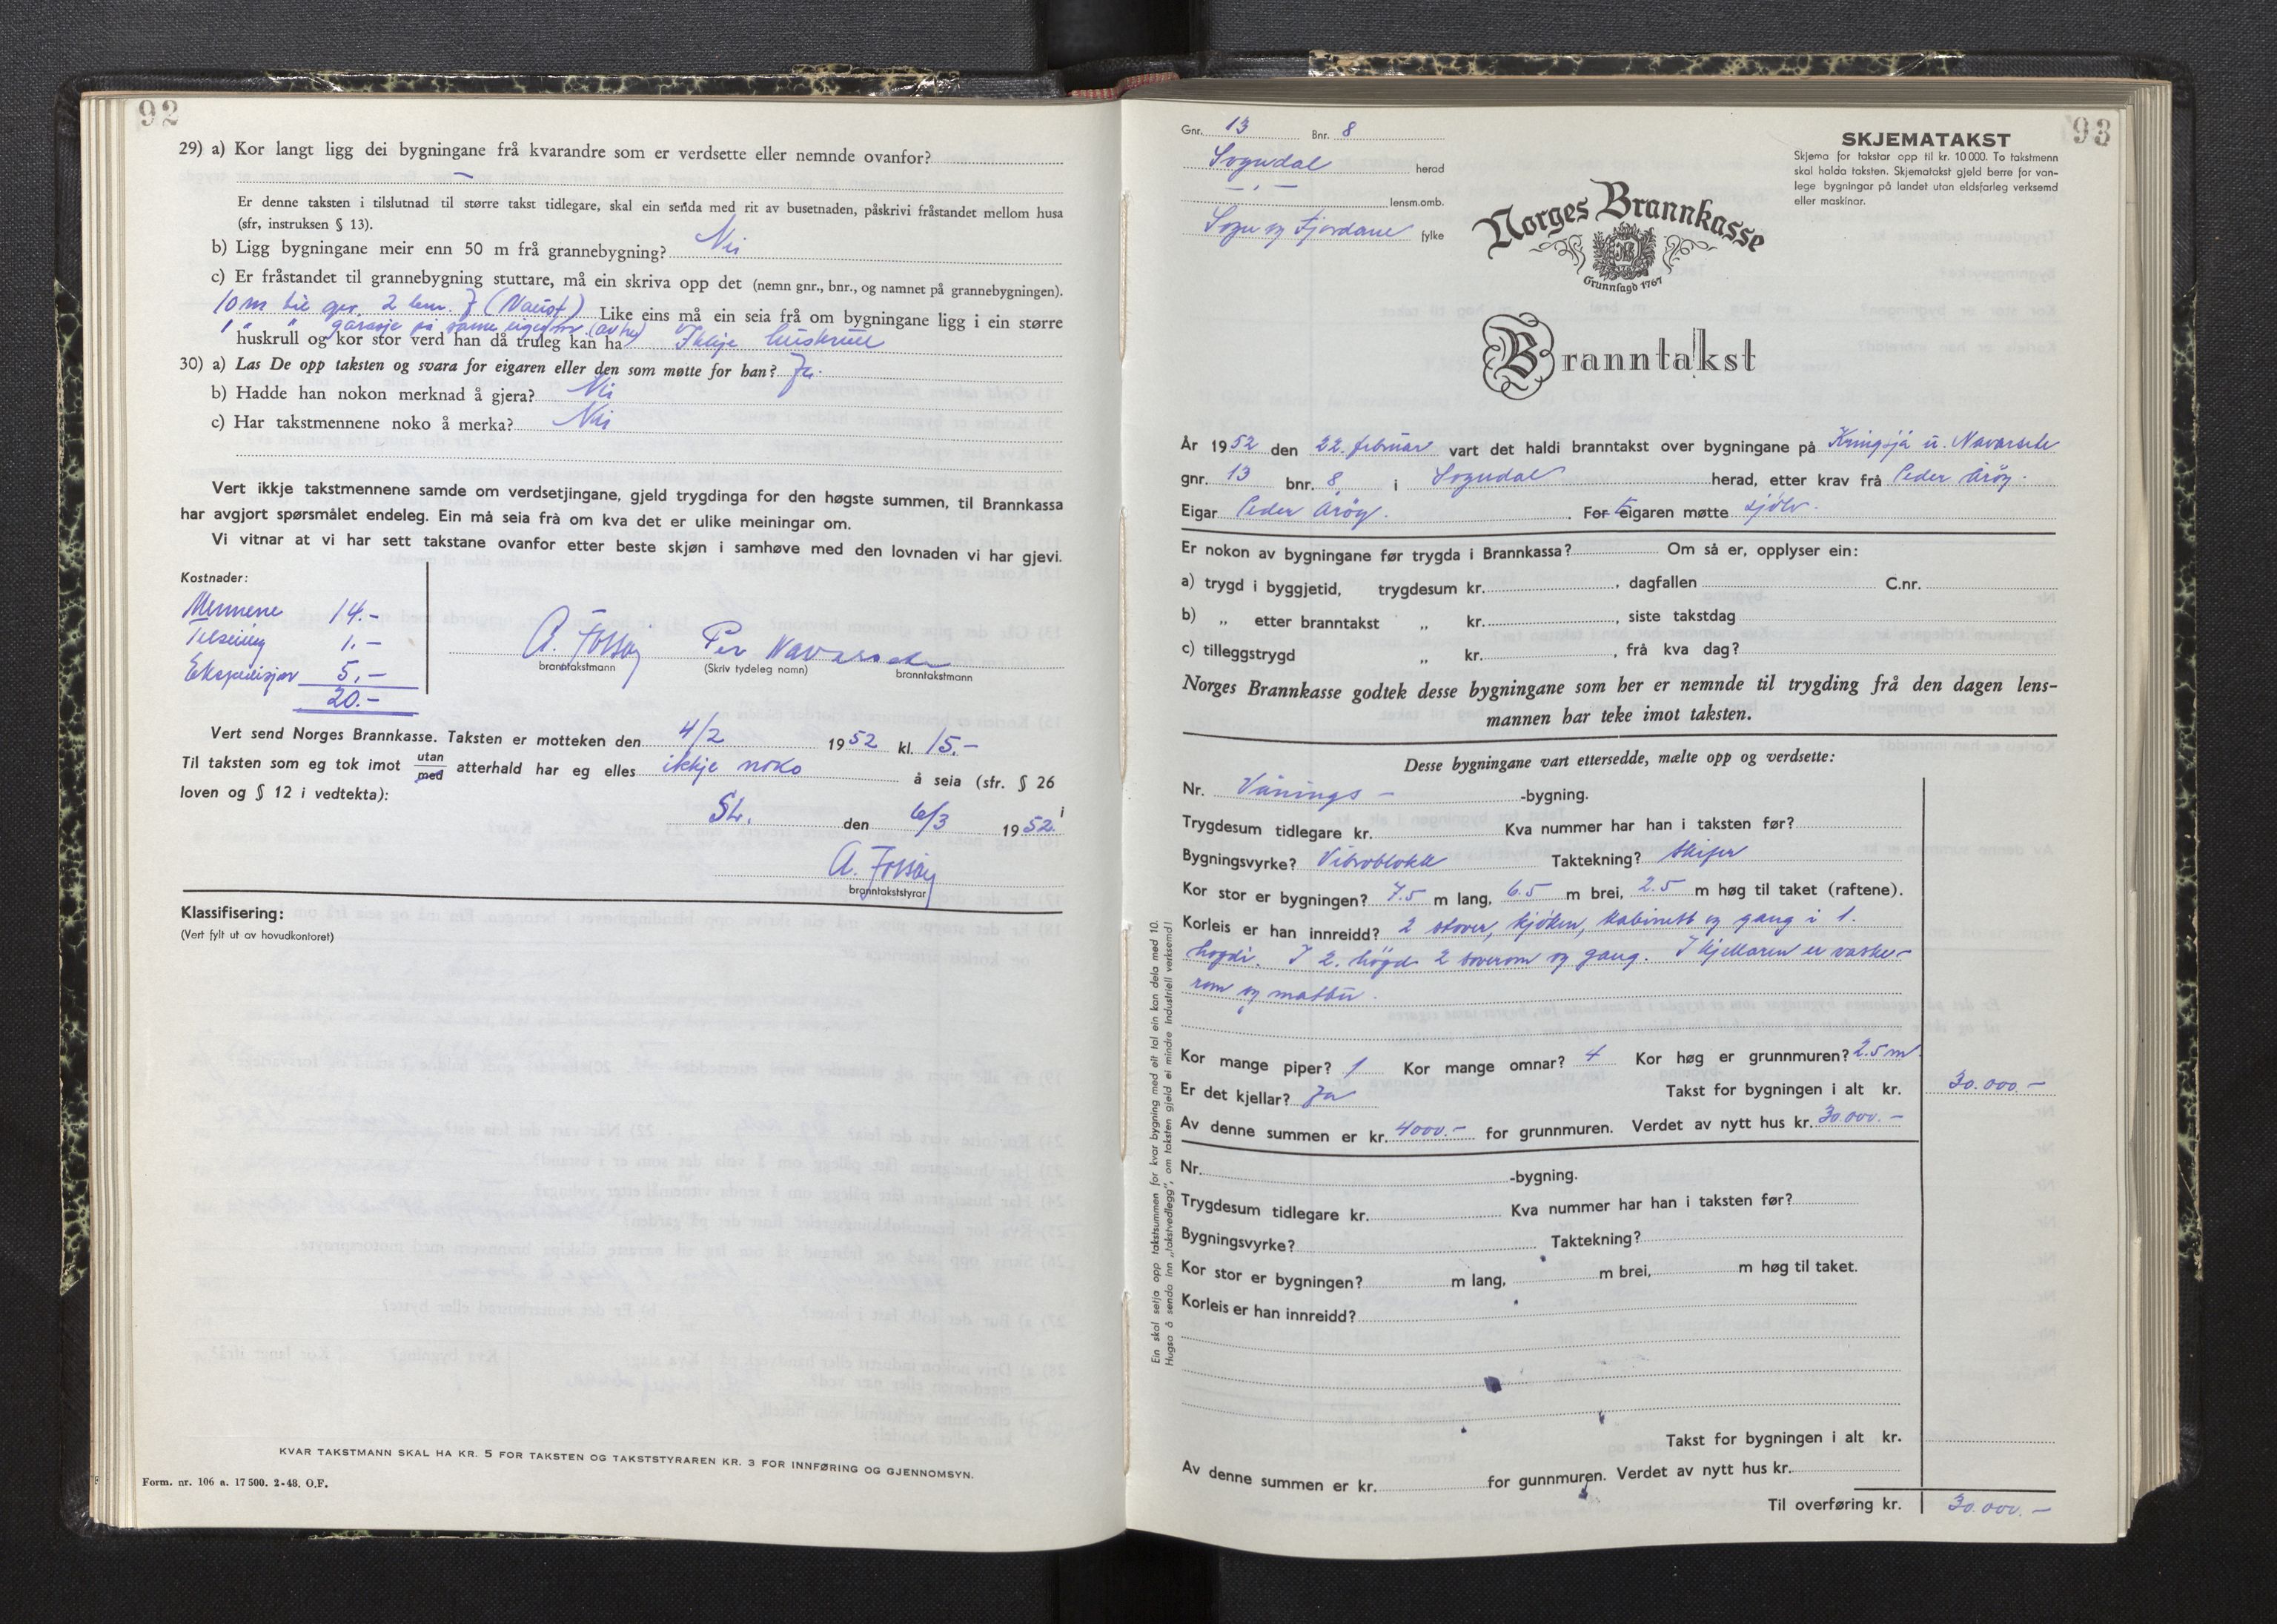 92
29) a) Kor langt ligg dei bygningane frå kvarandre som er verdsette eller nemnde ovanfor?
—
Er denne taksten i tilslutnad til større takst tidlegare, skal ein senda med rit av busetnaden, påskrivi fråstandet mellom husa
(sfr, instruksen § 13).
b) Ligg bygningane meir enn 50 m frå grannebygning? Nei
c) Er fråstandet til grannebygning stuttare, må ein skriva opp det (nemn gnr., bnr., og namnet på grannebygningen).
10 m til gnr. 2 bnr. 7 (Naust) Like eins må ein seia frå om bygningane ligg i ein større
1 " " garasje på same eigedom
huskrull og kor stor verd han då truleg kan ha Ikkje huskrull
30) a) Las De opp taksten og svara for eigaren eller den som møtte for han? Ja.
b) Hadde han nokon merknad å gjera? Nei
c) Har takstmennene noko å merka? Nei
Vert ikkje takstmennene samde om verdsetjingane, gjeld trygdinga for den høgste summen, til Brannkassa
har avgjort spørsmålet endeleg. Ein må seia frå om kva det er ulike meiningar om.
Vi vitnar at vi har sett takstane ovanfor etter beste skjøn i samhøve med den lovnaden vi har gjevi.
Kostnader:
Mennene 14.-
Telseing 1.-
Ekspedisjon 5.-
20.-
A. Fossøy Per Navarsete
branntakstmann (Skriv tydeleg namn) branntakstmann
Vert send Norges Brannkasse. Taksten er motteken den 4/2 1952 kl. 15.-
Til taksten som eg tok imot utan med atterhald har eg elles ikkje noko å seia (sfr. § 26 i
loven og § 12 i vedtekta):
den 6/3 1952.
A. Fossøy
branntakststyrar
Klassifisering:
(Vert fylt ut av hovudkontoret)
KVAR TAKSTMANN SKAL HA KR. 5 FOR TAKSTEN OG TAKSTSTYRAREN KR. 3 FOR INNFØRING OG GJENNOMSYN.
Form. nr. 106 a. 17500. 2-48. O.F.
93
Gnr. 13 Bnr. 8
Sogndal herad
— " — lensm.omb.
Sogn og Fjordane fylke
SKJEMATAKST
Skjema for takstar opp til kr. 10 000. To takstmenn
skal halda taksten. Skjematakst gjeld berre for van-
lege bygningar på landet utan eldsfarleg verksemd
eller maskinar.
Norges Brannkasse
Grunnlagd 1767
Branntakst
År 1952 den 22. februar vart det haldi branntakst over bygningane på Kringsjå u. Navarsete
gnr. 13 bnr. 8 i Sogndal herad, etter krav frå Peder Årøy.
Eigar Peder Årøy. For Eigaren møtte sjølv.
Er nokon av bygningane før trygda i Brannkassa? Om så er, opplyser ein:
a) trygd i byggjetid, trygdesum kr. , dagfallen C.nr.
b) „ etter branntakst „ kr. , siste takstdag
c) tilleggstrygd „ kr. , frå kva dag?
Norges Brannkasse godtek desse bygningane som her er nemnde til trygding frå den dagen lens-
mannen har teke imot taksten.
Desse bygningane vart ettersedde, mælte opp og verdsette:
Nr. Vånings - -bygning.
Trygdesum tidlegare kr. Kva nummer har han i taksten før?
Bygningsvyrke? Vibroblokk Taktekning? Skifer
Kor stor er bygningen? 7.5 m lang, 6.5 m brei, 2.5 m høg til taket (raftene).
Korleis er han innreidd? 2 stover, kjøken, kabinett og gang i 1.
høgdi. I 2. høgd 2 soverom og gang. I kjellaren er vaske-
rom og matbu.
Kor mange piper? 1 Kor mange omnar? 4 Kor høg er grunnmuren? 2.5 m.
Er det kjellar? Ja Takst for bygningen i alt kr. 30.000.-
Av denne summen er kr. 4000.- for grunnmuren. Verdet av nytt hus kr. 30.000.-
Nr. -bygning.
Trygdesum tidlegare kr. Kva nummer har han i taksten før?
Bygningsvyrke? Taktekning?
Kor stor er bygningen? m lang, m brei, m høg til taket.
Korleis er han innreidd?
Takst for bygningen i alt kr.
Av denne summen er kr. for gunnmuren. Verdet av nytt hus kr.
Til overføring kr. 30.000.-
Ein skal setja opp takstsummen for kvar bygning med eit tal ein kan dela med 10.
Hugsa å senda inn „takstvedlegg", om taksten gjeld ei mindre industriell verksemd!